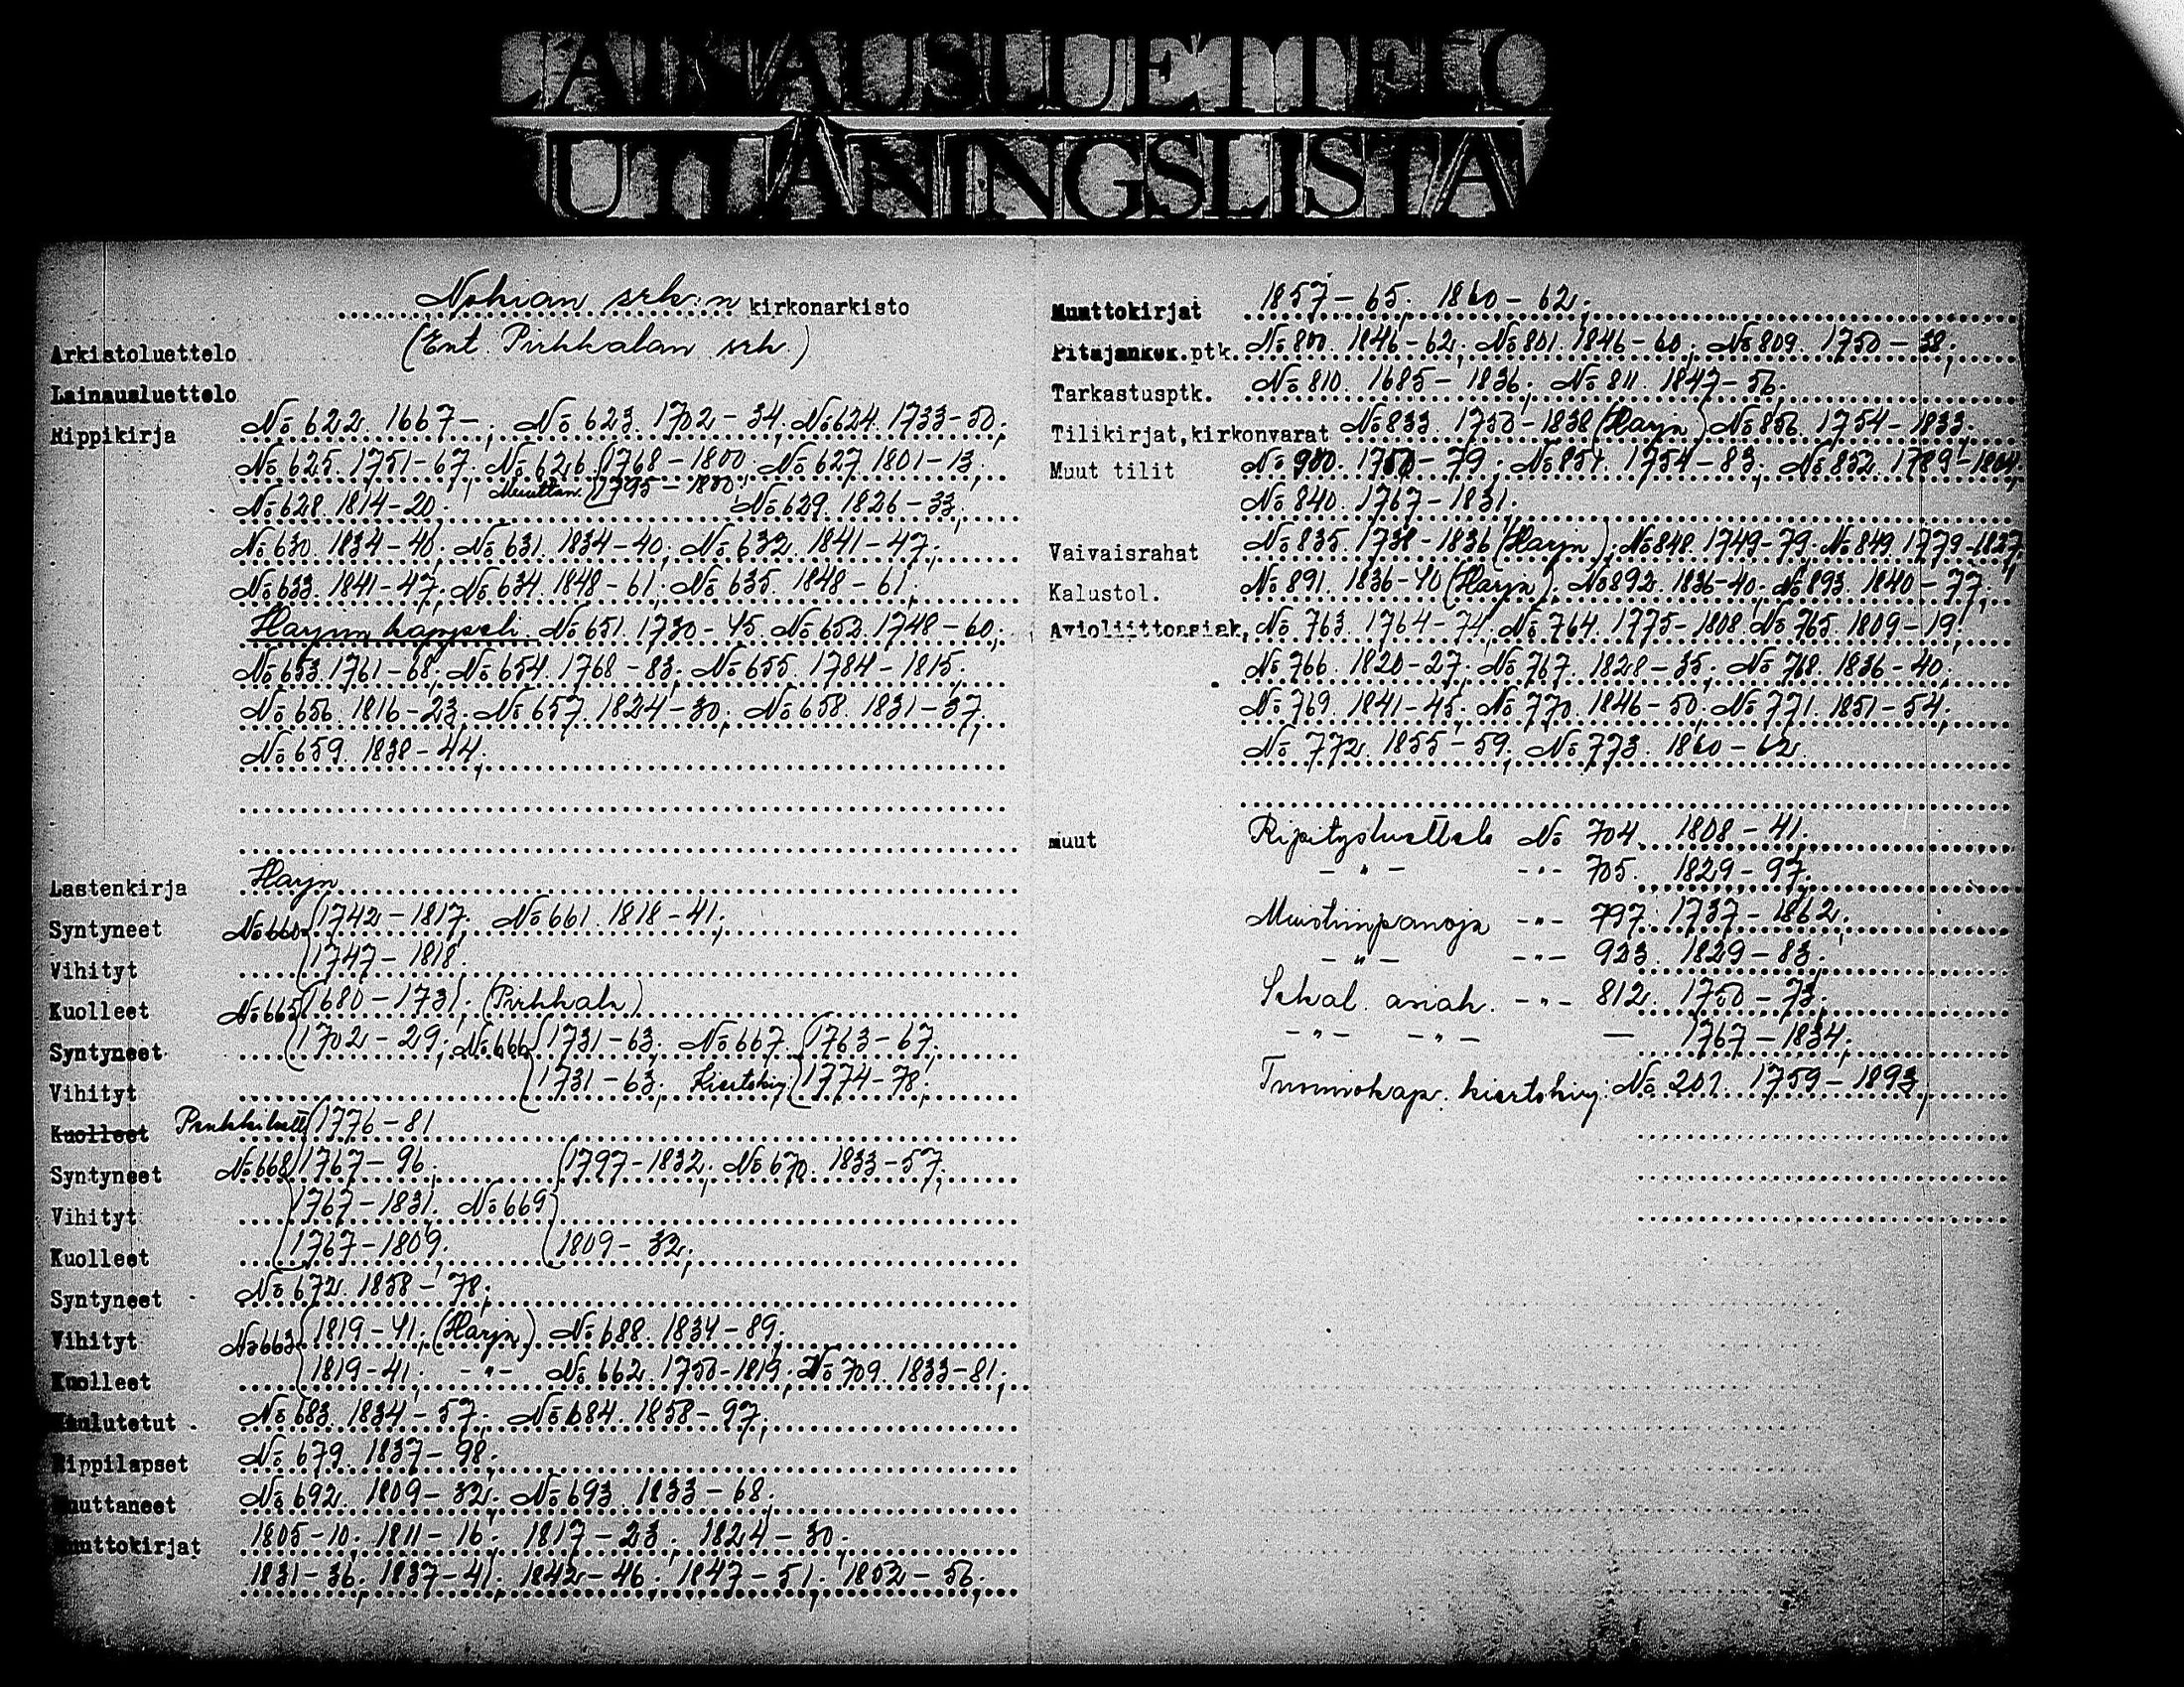 LAINAUSLUETTELO
UTLÅNINGSLISTA
Nokian srk:n kirkonarkisto
Arkistoluettelo (Ent. Pirkkalan srk.)
Lainausluettelo
Rippikirja No 622. 1667- ; No 623. 1702-34; No 624. 1733-50;
No 625. 1751-67; No 626. 1768-1800; No 627. 1801-13;
Muuttan. 1795-1800;
No 628. 1814-20; No 629. 1826-33;
No 630. 1834-40; No 631. 1834-40; No 632. 1841-47;
No 633. 1841-47; No 634. 1848-61; No 635. 1848-61;
Harjun kappeli No 651. 1730-45. No 652. 1748-60;
No 653. 1761-68; No 654. 1768-83; No 655. 1784-1815;
No 656. 1816-23; No 657. 1824-30; No 658. 1831-37;
No 659. 1838-44;
Lastenkirja Harju
Syntyneet No 660 1742-1817; No 661. 1818-41;
Vihityt 1747-1818.
Kuolleet No 665 1680-1731; (Pirkkala)
Syntyneet 1702-29; No 666 1731-63; No 667. 1763-67;
Vihityt 1731-63; Kiertokirj. 1774-78;
Kuolleet 1776-81
Syntyneet No 668 1767-96; 1797-1832; No 670. 1833-57;
Vihityt 1767-1831. No 669
Kuolleet 1767-1809; 1809-32;
Syntyneet No 672. 1858-78;
Vihityt No 663 1819-41; (Harju) No 688. 1834-89;
Kuolleet 1819-41; -"- No 662. 1750-1819; No 709. 1833-81;
Kuulutetut No 683. 1834-57; No 684. 1858-97;
Rippilapset No 679. 1837-98;
Muuttaneet No 692. 1809-32; No 693. 1833-68;
Muuttokirjat 1805-10; 1811-16; 1817-23; 1824-30;
1831-36; 1837-41; 1842-46; 1847-51; 1852-56;
Muuttokirjat 1857-65; 1860-62;
Pitäjänkok.ptk. No 800. 1846-62; No 801. 1846-60; No 809. 1750-38;
Tarkastusptk. No 810. 1685-1836; No 811. 1847-56;
Tilikirjat,kirkonvarat No 833. 1750-1838 (Harju) No 856. 1754-1833;
Muut tilit No 900. 1750-79; No 851. 1754-83; No 852. 1789-1804;
No 840. 1767-1831.
Vaivaisrahat No 835. 1738-1836 (Harju); No 848. 1749-79; No 849. 1779-1827;
Kalustol. No 891. 1836-40 (Harju); No 892. 1836-40; No 893. 1840-77;
Avioliittoasiak, No 763. 1764-74; No 764. 1775-1808. No 765. 1809-19;
No 766. 1820-27; No 767. 1828-35; No 768. 1836-40;
No 769. 1841-45; No 770. 1846-50; No 771. 1851-54;
No 772. 1855-59; No 773. 1860-62.
muut Ripitysluettelo No 704. 1808-41.
-"- -"- 705. 1829-97.
Muistiinpanoja -"- 797. 1737-1862;
-"- -"- 923. 1829-83.
Sekal. asiak. -"- 812. 1750-73;
-"- -"- — 1767-1834;
Tuomiokap. kiertokirj: No 201. 1759-1893,